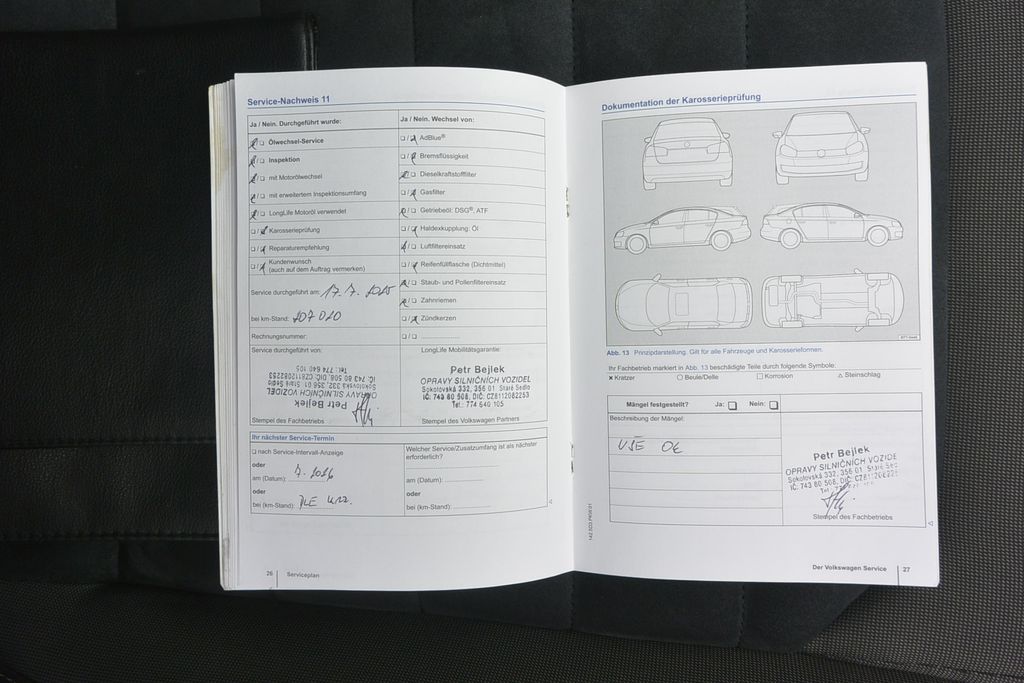 Service-Nachweis 11
Ja / Nein. Durchgeführt wurde:
Ölwechsel-Service
Inspektion
mit Motorölwechsel
mit erweitertem Inspektionsumfang
LongLife Motoröl verwendet
Karosserieprüfung
Reparaturempfehlung
Kundenwunsch
(auch auf dem Auftrag vermerken)
Service durchgeführt am: 17. 7. 2025
bei km-Stand: 207 020
Rechnungsnummer:
Service durchgeführt von:
Petr Bejlek
OPRAVY SILNIČNÍCH VOZIDEL
Sokolovská 332, 356 01 Staré Sedlo
IČ: 743 80 508, DIČ: CZ8112082253
Tel.: 774 640 105
Stempel des Fachbetriebs
Ja / Nein. Wechsel von:
AdBlue®
Bremsflüssigkeit
Dieselkraftstofffilter
Gasfilter
Getriebeöl: DSG®, ATF
Haldexkupplung: Öl
Luftfiltereinsatz
Reifenfüllflasche (Dichtmittel)
Staub- und Pollenfiltereinsatz
Zahnriemen
Zündkerzen
LongLife Mobilitätsgarantie:
Petr Bejlek
OPRAVY SILNIČNÍCH VOZIDEL
Sokolovská 332, 356 01 Staré Sedlo
IČ: 743 80 508, DIČ: CZ8112082253
Tel.: 774 640 105
Stempel des Volkswagen Partners
Ihr nächster Service-Termin
nach Service-Intervall-Anzeige
oder
am (Datum): 7. 2026
oder
bei (km-Stand): DLE
Welcher Service/Zusatzumfang ist als nächster
erforderlich?
am (Datum):
oder
bei (km-Stand):
26 Serviceplan
Dokumentation der Karosserieprüfung
Abb. 13 Prinzipdarstellung. Gilt für alle Fahrzeuge und Karosserieformen.
Ihr Fachbetrieb markiert in Abb. 13 beschädigte Teile durch folgende Symbole:
Kratzer Beule/Delle Korrosion Steinschlag
Mängel festgestellt? Ja: Nein:
Beschreibung der Mängel:
VŠE OK
Petr Bejlek
OPRAVY SILNIČNÍCH VOZIDE
Sokolovská 332, 356 01 Staré Sed
IČ: 743 80 508, DIČ: CZ8112082253
Stempel des Fachbetriebs
Der Volkswagen Service 27